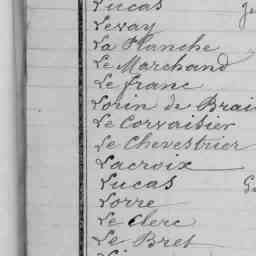 Lucas
Levay
La Planche
Le Marchand
Le franc
Lorin de Brai
Le Corvaisier
Le Chevestrier
Lacroix
Lucas
Lorre
Le Clerc
Le Bret